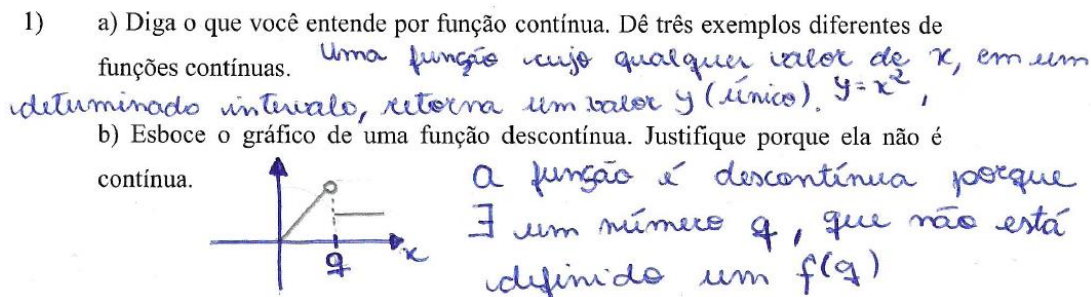 1) a) Diga o que você entende por função contínua. Dê três exemplos diferentes de
funções contínuas. Uma função cujo qualquer valor de x, em um
determinado intervalo, retorna um valor y (único). y = x²,
b) Esboce o gráfico de uma função descontínua. Justifique porque ela não é
contínua. a função é descontínua porque
∃ um número q, que não está
definido um f(q)
q
x